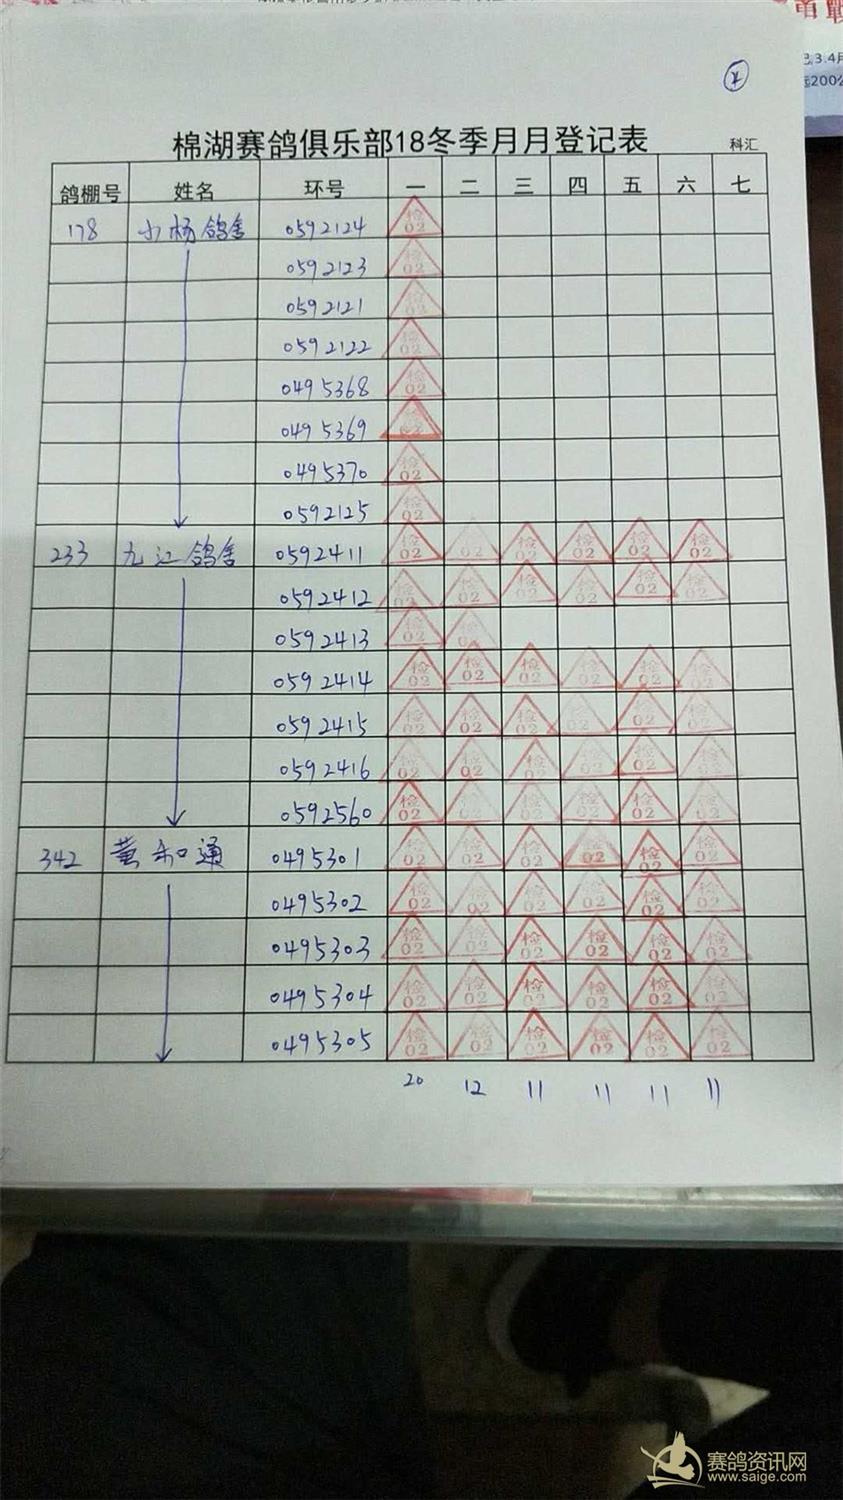 3.4月
200
棉湖赛鸽俱乐部18冬季月月登记表 科汇
鸽棚号 姓名 环号 一 二 三 四 五 六 七
178 小杨鸽舍 0592124 检02
0592123 检02
0592121 检02
0592122 检02
0495368 检02
0495369 检02
0495370 检02
0592125 检02
233 九江鸽舍 0592411 检02 检02 检02 检02 检02 检02
0592412 检02 检02 检02 检02 检02 检02
0592413 检02 检02
0592414 检02 检02 检02 检02 检02 检02
0592415 检02 检02 检02 检02 检02 检02
0592416 检02 检02 检02 检02 检02 检02
0592560 检02 检02 检02 检02 检02 检02
342 黄和通 0495301 检02 检02 检02 检02 检02 检02
0495302 检02 检02 检02 检02 检02 检02
0495303 检02 检02 检02 检02 检02 检02
0495304 检02 检02 检02 检02 检02 检02
0495305 检02 检02 检02 检02 检02 检02
20 12 11 11 11 11
赛鸽资讯网
www.saige.com